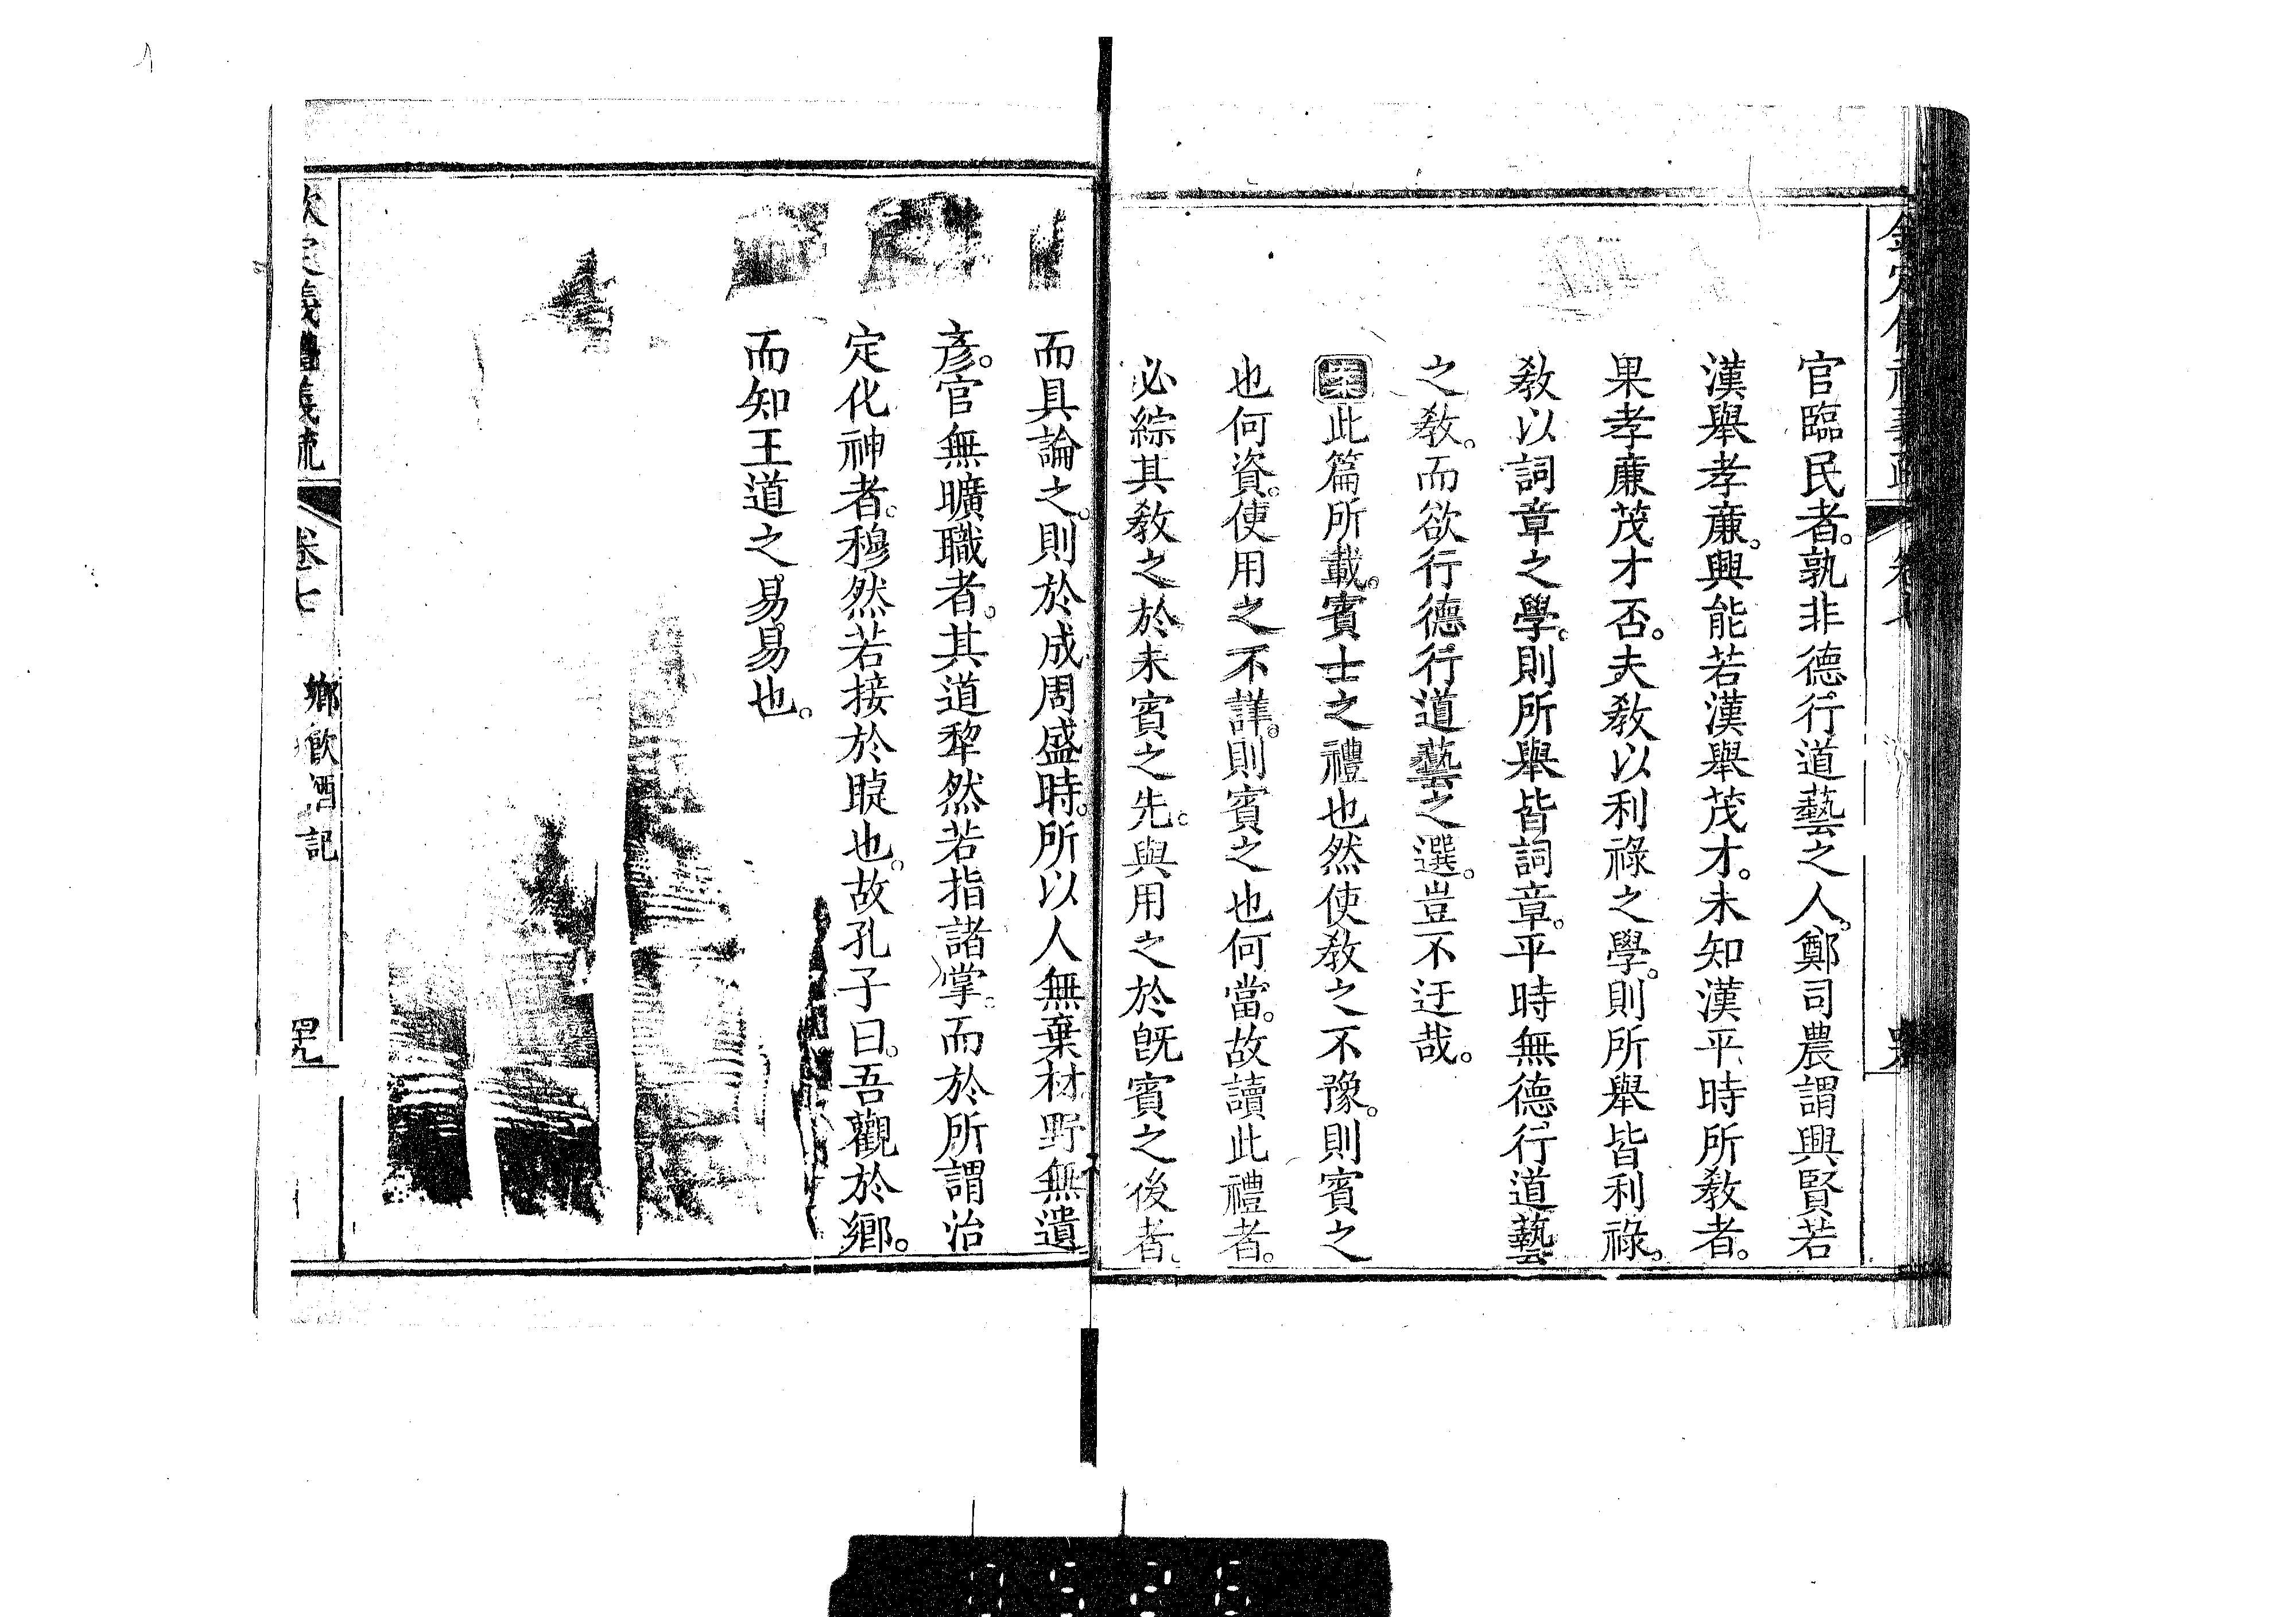 官臨民者。孰非德行道藝之人。鄭司農謂興賢若
漢舉孝廉。興能若漢舉茂才。未知漢平時所敎者。
果孝廉茂才否。夫敎以利祿之學。則所舉皆利祿。
敎以詞章之學。則所舉皆詞章。平時無德行道藝
之敎。而欲行德行道藝之選。豈不迂哉。
案此篇所載。賓士之禮也然使敎之不豫。則賓之
也何資。使用之不詳。則賓之也何當。故讀此禮者。
必綜其敎之於未賓之先。與用之於旣賓之後者。
而具論之。則於成周盛時。所以人無棄材野無遺
彥。官無曠職者。其道犂然若指諸掌。而於所謂治
定化神者。穆然若接於睫也。故孔子曰。吾觀於鄉。
而知王道之易易也。
欽定義禮義疏
卷七
鄉飮酒記